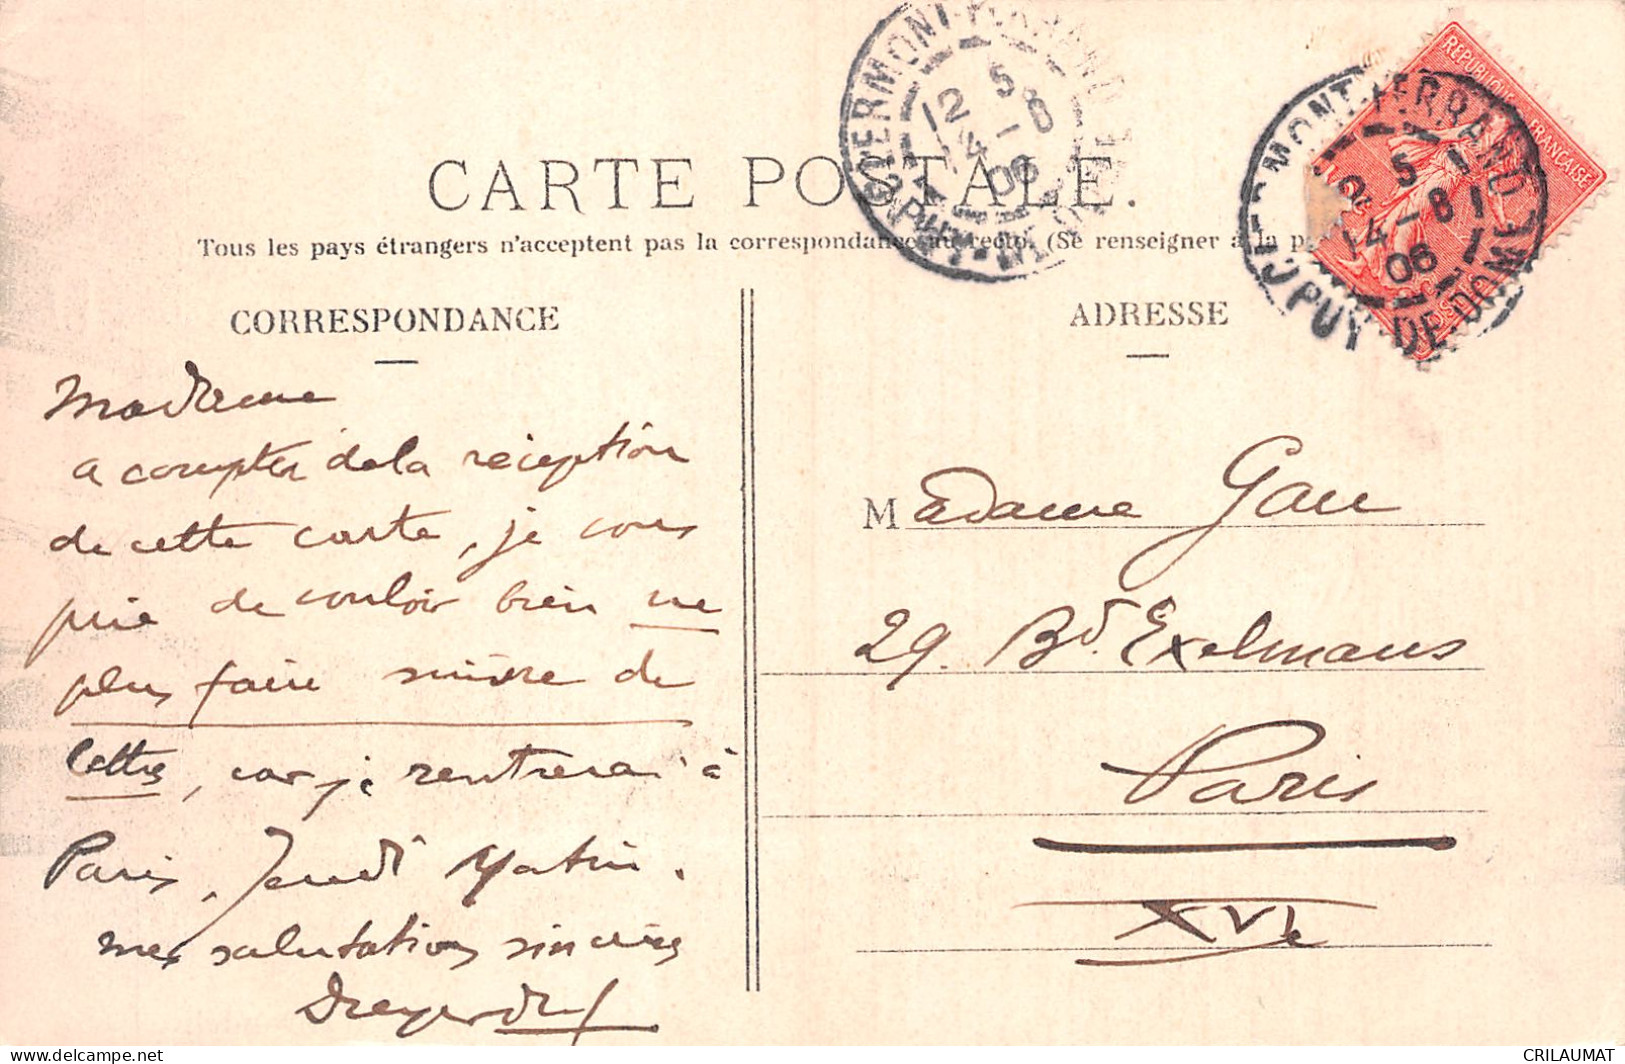 CARTE POSTALE.
Tous les pays étrangers n'acceptent pas la correspondance au recto. (Se renseigner à la p
CORRESPONDANCE
Madame
a compter de la réception
de cette carte, je vous
prie de vouloir bien ne
plus faire suivre de
lettres, car je rentrerai à
Paris, Jeudi Matin.
mes salutations sincères
ADRESSE
Madame Gau
29. Bd. Exelmans
Paris
XVIe
CLERMONT-FERRAND
12 5
14 - 8
06
PUY DE DOME
REPUBLIQUE FRANÇAISE
MONT-FERRAND
5
14 - 8
06
PUY DE DOME
delcampe.net
CRILAUMAT